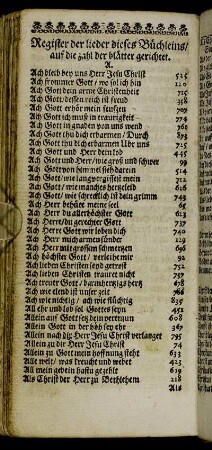 Register der lieder dieses Büchleins/
auf die zahl der blätter gerichtet.
A.
Ach bleib bey uns Herr Jesu Christ 525
Ach frommer Gott / wo sol ich hin 120
Ach Gott dein arme Christenheit 715
Ach Gott / dessen reich ist freud 358
Ach Gott erhör mein seufzen 770
Ach Gott ich muß in traurigkeit 774
Ach Gott in gnaden von uns wend 766
Ach Gott thu dich erbarmen / Durch 893
Ach Gott thu dich erbarmen Uber uns 725
Ach Gott und Herr dein feld 445
Ach Gott und Herr / wie groß und schwer 99
Ach Gott von himmel sieh darein 514
Ach Gott wie lang vergissest mein 571
Ach Gott / wie manches hertzeleid 616
Ach Gott / wie schrecklich ist dein grimm 743
Ach Herr behüte meine seel 65
Ach Herr du allerhöchster Gott 623
Ach Herr / du gerechter Gott 737
Ach Herre Gott wir loben dich 740
Ach Herr mich armen sünder 109
Ach Herr mit großem schmerzen 690
Ach höchster Gott / verleihe mir 92
Ach lieben Christen seyd getrost 752
Ach lieben Christen trauret nicht 797
Ach treuer Gott / barmhertzigs hertz 678
Ach wie elend ist unser zeit 766
Ach wie nichtig / ach wie flüchtig 839
All ehr und lob sol Gottes seyn 451
Allein auf Gott setz dein vertrauen 608
Allein Gott in der höh sey ehr 367
Allein nach dir Herr Jesu Christ verlanget 795
Allein zu dir Herr Jesu Christ 74
Allein zu Gott mein hoffnung steht 633
Alle welt / was kreucht und webet 423
All mein gebein hastu gezehlt 691
Als Christ der Herr zu Bethlehem 218
Als